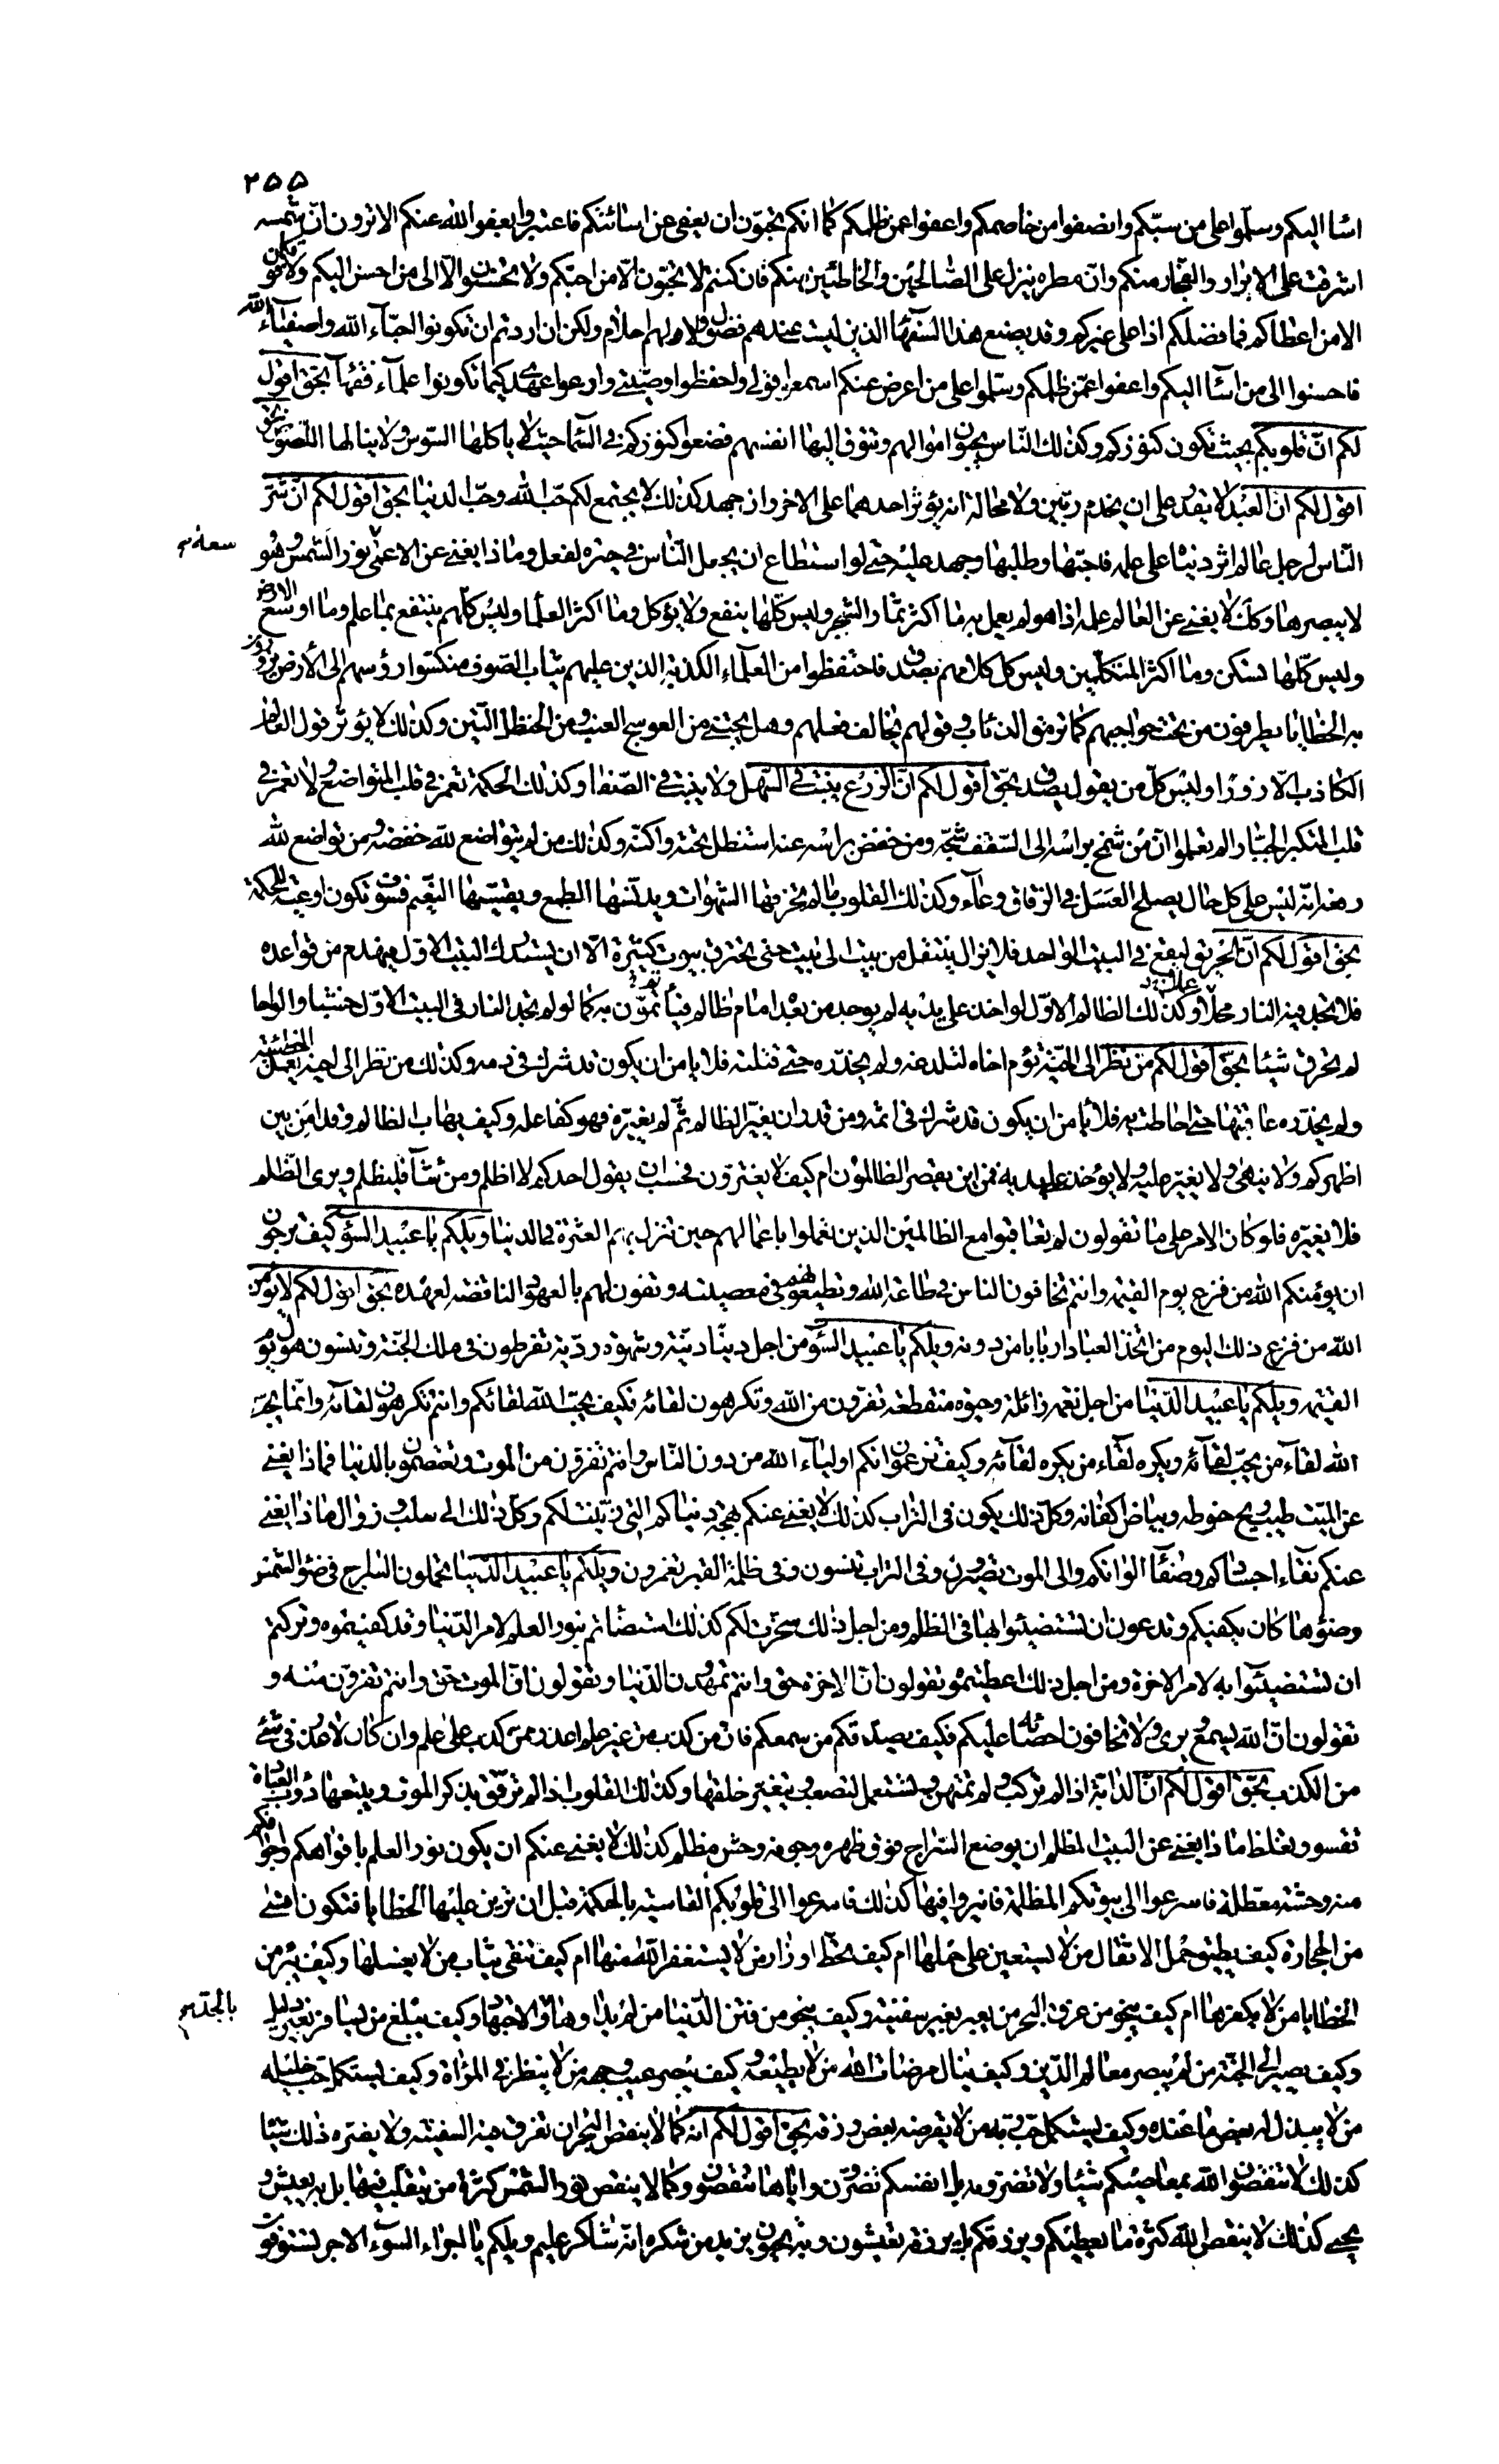 ٢٥٥
اسٔا اليكم وسلّموا على من سبّكم وانصفوا من خاصمكم واعفوا عمن ظلمكم كما انكم تحبّون ان يعفى عن اسائتكم فاعتبروا بعفو الله عنكم الا ترون انّ شمسه
اشرقت على الابرار والفجّار منكم وانّ مطره ينزل على الصّالحين والخاطئين منكم فان كنتم لا تحبّون الّا من احبّكم ولا تحسنون الّا الى من احسن اليكم ولا تكافون
الا من اعطاكم فما فضلكم اذا على غيركم وقد يصنع هذا السّفهآ الذين ليست عندهم فضول ولا لهم احلام ولكن ان اردتم ان تكونوا احبّاء الله واصفيآء الله
فاحسنوا الى من اسآا اليكم واعفوا عمّن ظلمكم وسلّموا على من اعرض عنكم اسمعوا قولي واحفظوا وصيّتي وارعوا عهدي كيما تكونوا علمآء فقهآ بحق اقول
لكم انّ قلوبكم بحيث تكون كنوزكم وكذلك النّاس يحبّون اموالهم وتتوق اليها انفسهم فضعوا كنوزكم في السّمآ حيث لا ياكلها السّوس ولا ينالها اللّصوص بحق
اقول لكم انّ العبد لا يقدر على ان يخدم ربّين ولا محالة انه يؤثر احدهما على الاخر وان جهد كذلك لا يجتمع لكم حبّ الله وحبّ الدنيا بحق اقول لكم انّ شرّ
النّاس لرجل عالم اثر دنياه على علمه فاحبّها وطلبها وجهد عليها حتى لو استطاع ان يجعل النّاس في حيرة لفعل وما ذا يغني عن الاعمى سعة نور الشّمس وهو
لا يبصرها وكذلك لا يغني عن العالم علمه اذا هو لم يعمل به ما اكثر ثمار الشّجر وليس كلّها ينفع ولا يؤكل وما اكثر العلمآ وليس كلّهم ينتفع بما علم وما اوسع الارض
وليس كلّها تسكن وما اكثر المتكلّمين وليس كل كلامهم يصدق فاحتفظوا من العلمآء الكذبة الذين عليهم ثياب الصّوف منكّسوا رؤسهم الى الأرض يزوّرون
به الخطايا يطرفون من تحت حواجبهم كما ترمق الذئاب وقولهم يخالف فعلهم وهل يجتنى من العوسج العنب ومن الحنظل التّين وكذلك لا يؤثر قول العالم
الكاذب الّا زورًا وليس كلّ من يقول يصدق بحقّ اقول لكم انّ الزرع ينبت في السّهل ولا ينبت في الصّفا وكذلك الحكمة تعمر في قلب المتواضع ولا تعمر في
قلب المتكبر الجبّار الم تعلموا انّ من شمخ براسه الى السّقف شجّه ومن خفض براسه عنه استظلّ تحته واكنّه وكذلك من لم يتواضع لله خفضه ومن تواضع لله
رفعه انّه ليس على كل حال يصلح العسل في الزقاق وعاء وكذلك القلوب ما لم تخرقها الشّهوات ويدنّسها الطمع ويقسيها النّعيم فسوف تكون اوعية للحكمة
بحق اقول لكم انّ الحريق ليقع في البيت الواحد فلا يزال ينتقل من بيت الى بيت حتى تحترق بيوت كثيرة الّا ان يستدرك البيت الاوّل فيهدم من قواعده
فلا تجد فيه النار محلّا وكذلك الظالم الاوّل لو اخذ على يديه لم يوجد من بعده امام ظالم فيأتمّون به كما لو لم تجد النار في البيت الاوّل خشبا والواحا
لم تحرق شيئا بحقّ اقول لكم من نظر الى الحيّة تؤم اخاه لتلدغه ولم يحذّره حتى قتلته فلا يامن ان يكون قد شرك في دمه وكذلك من نظر الى اخيه يعمل الخطيئة
ولم يحذّره عاقبتها حتى احاطت به فلا يامن ان يكون قد شرك في اثمه ومن قدر ان يغيّر الظالم ثمّ لم يغيّره فهو كفاعله وكيف يهاب الظالم وقد امن بين
اظهركم ولا ينهى ولا يغيّر عليه ولا يؤخذ على يديه فمن اين يقصر الظالمون ام كيف لا يغترّون فحسب ان يقول احدكم لا اظلم ومن شآ فليظلم ويرى الظّلم
فلا يغيّره فلو كان الامر على ما تقولون لم تعاقبوا مع الظالمين الذين لم تعملوا باعمالهم حين تنزل بهم العثرة في الدنيا ويلكم يا عبيد السّوء كيف ترجون
ان يؤمنكم الله من فزع يوم القيمة وانتم تخافون الناس في طاعة الله وتطيعونهم في معصيته وتفون لهم بالعهود الناقضة لعهده بحق اقول لكم لا يؤمن
الله من فزع ذلك اليوم من اتّخذ العباد اربابا من دونه ويلكم يا عبيد السّوء من اجل دنيا دنيّة وشهوة رديّة تفرطون في ملك الجنّة وتنسون هول يوم
القيمة ويلكم يا عبيد الدّنيا من اجل نعمة زائلة وحيوة منقطعة تفرّون من الله وتكرهون لقائه فكيف يحبّ الله لقائكم وانتم تكرهون لقآئه وانّما يحبّ
الله لقآء من يحبّ لقآئه ويكره لقآء من يكره لقآئه وكيف تزعمون انكم اوليآء الله من دون النّاس وانتم تفرّون من الموت وتعتصمون بالدنيا فماذا يغني
عن الميّت طيب ريح حنوطه وبياض اكفانه وكلّ ذلك يكون في التراب كذلك لا يغني عنكم بهجة دنياكم التي زيّنت لكم وكلّ ذلك الى سلب وزوال ماذا يغني
عنكم نقآء اجسادكم وصفآء الوانكم والى الموت تصيرون وفي التراب تنسون وفي ظلمة القبر تغمرون ويلكم يا عبيد الدّنيا تحملون السّراج في ضوء الشّمس
وضوؤها كان يكفيكم وتدعون ان تستضيئوا بها في الظلم ومن اجل ذلك سخّرت لكم كذلك استضأتم بنور العلم لامر الدّنيا وقد كفيتموه وتركتم
ان تستضيئوا به لامر الاخرة ومن اجل ذلك اعطيتموه تقولون انّ الاخرة حق وانتم تمهدون الدّنيا وتقولون انّ الموت حقّ وانتم تفرّون منه و
تقولون انّ الله يسمع ويرى ولا تخافون احصائه عليكم فكيف يصدّقكم من سمعكم فان من كذب من غير علم اعذر ممن كذب على علم وان كان لا عذر في شئ
من الكذب بحقّ اقول لكم انّ الدّابّة اذا لم تركب ولم تمتهن وتستعمل لتصعب ويتغيّر خلقها وكذلك القلوب اذا لم ترقّق بذكر الموت ويتبعها دؤب العبادة
تقسو وتغلظ ماذا يغني عن البيت المظلم ان يوضع السّراج فوق ظهره وجوفه وحش مظلم كذلك لا يغني عنكم ان يكون نور العلم بافواهكم واجوافكم
منه وحشة معطّلة فاسرعوا الى بيوتكم المظلمة فانيروا فيها كذلك فاسرعوا الى قلوبكم القاسية بالحكمة قبل ان ترين عليها الخطايا فتكون اقسى
من الحجارة كيف يطيق حمل الاثقال من لا يستعين على حملها ام كيف تحطّ اوزار من لا يستغفر الله منها ام كيف تنقى ثياب من لا يغسلها وكيف يبرء من
الخطايا من لا يكفرها ام كيف ينجو من غرق البحر من يعبر بغير سفينة وكيف ينجو من فتن الدّنيا من لم يداوها بالجدّ والاجتهاد وكيف يبلغ من يسافر بغير دليل
وكيف يصير الى الجنّة من لم يبصر معالم الدّين وكيف ينال مرضات الله من لا يطيعه وكيف يبصر عيب وجهه من لا ينظر في المرآة وكيف يستكمل حبّ خليله
من لا يبذل له بعض ما عنده وكيف يستكمل حبّ ربّه من لا يقرضه بعض ما رزقه بحق اقول لكم انه كما لا ينقص البحر ان تغرق فيه السفينة ولا يضرّه ذلك شيئا
كذلك لا تنقصون الله بمعاصيكم شيئا ولا تضرّونه بل انفسكم تضرّون وايّاها تنقصون وكما لا ينقص نور الشّمس كثرة من يتقلّب فيها بل به يعيش و
يحيى كذلك لا ينقص الله كثرة ما يعطيكم ويرزقكم بل برزقه تعيشون وبه تحيون يزيد من شكره انّه شاكر عليم ويلكم يا اجراء السّوء الاجر تستوفون